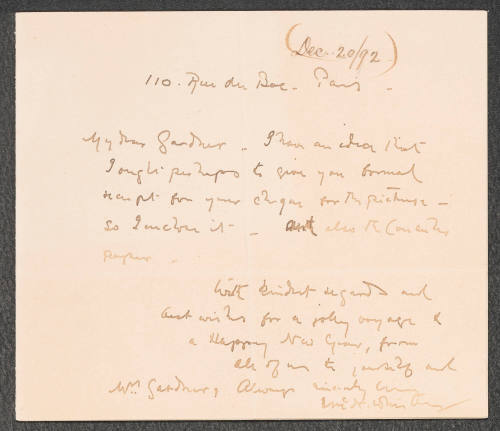 (Dec. 20/92)
110. Rue du Bac - Paris -
My dear Gardner - I have an idea that
I ought perhaps to give you formal
receipt for your cheque for the picture -
so I enclose it - also the
paper -
With kindest regards and
best wishes for a jolly voyage &
a Happy New Year, from
all of us to yourself and
Mrs. Gardner, Always sincerely